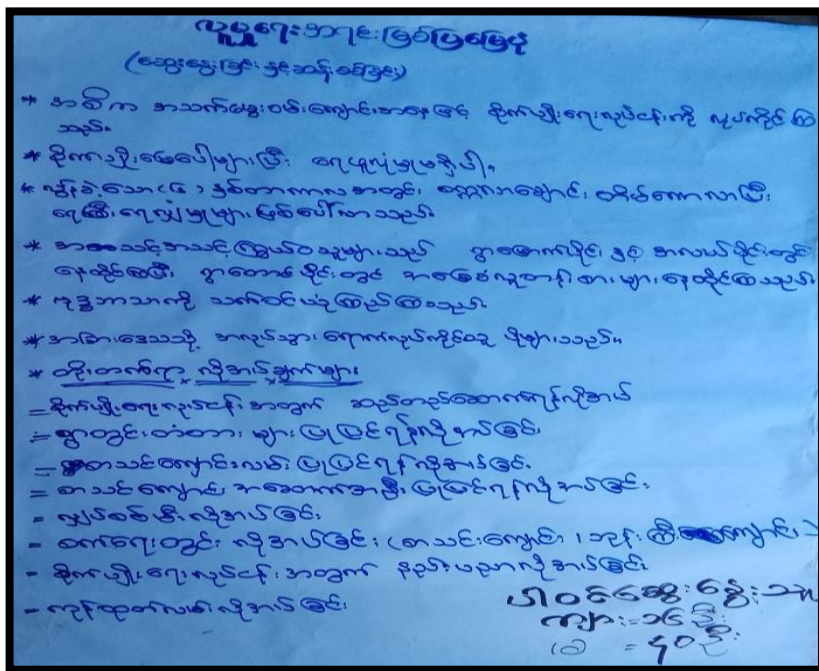 လူမှုရေးအရင်းမြစ်ပြမြေပုံ
(ဆွေးနွေးခြင်းနှင့်ဆန်းစစ်ခြင်း)
* အဓိက အသက်မွေးဝမ်းကျောင်းအနေဖြင့် စိုက်ပျိုးရေးလုပ်ငန်းကို လုပ်ကိုင်ကြ
သည်။
* စိုက်ပျိုးမြေပေါများပြီး ရေငုပ်လုံမှုမရှိပါ။
* လွန်ခဲ့သော (၆) နှစ်တာကာလအတွင်း ချောင်း တိမ်ကောလာပြီး
ရေကြီးရေလျှံမှုများ ဖြစ်ပေါ်လာသည်။
* အသင့်အသင့်ကြွယ်ဝသူများသည် ရွာမြောက်ပိုင်း နှင့် အလယ်ပိုင်းတွင်
နေထိုင်ကြပြီး ရွာတောင်ပိုင်းတွင် အခြေခံလူတန်းစားများ နေထိုင်ကြသည်။
* ဗုဒ္ဓဘာသာကို သက်ဝင်ယုံကြည်ကြသည်။
* အခြားဒေသသို့ အလုပ်သွားရောက်လုပ်ကိုင်သူ ပိုများသည်။
* တိုးတက်ရာ လိုအပ်ချက်များ
= စိုက်ပျိုးရေးလုပ်ငန်းအတွက် ဆည်တည်ဆောက်ရန်လိုအပ်
= ရွာတွင်းတံတားများပြုပြင်ရန်လိုအပ်ခြင်း
= စာသင်ကျောင်းလမ်းပြုပြင်ရန်လိုအပ်ခြင်း
= စာသင်ကျောင်း အဆောက်အဦးပြုပြင်ရန်လိုအပ်ခြင်း
- လျှပ်စစ်မီးလိုအပ်ခြင်း
- စက်ရေတွင်း လိုအပ်ခြင်း (စာသင်ကျောင်း၊ ဘုန်းကြီးကျောင်း)
- စိုက်ပျိုးရေးလုပ်ငန်းအတွက် နည်းပညာလိုအပ်ခြင်း
- ကုန်ထုတ်လမ်းလိုအပ်ခြင်း
ပါဝင်ဆွေးနွေးသူ
ကျား = ၁၆ ဦး
မ = ၄၀ ဦး